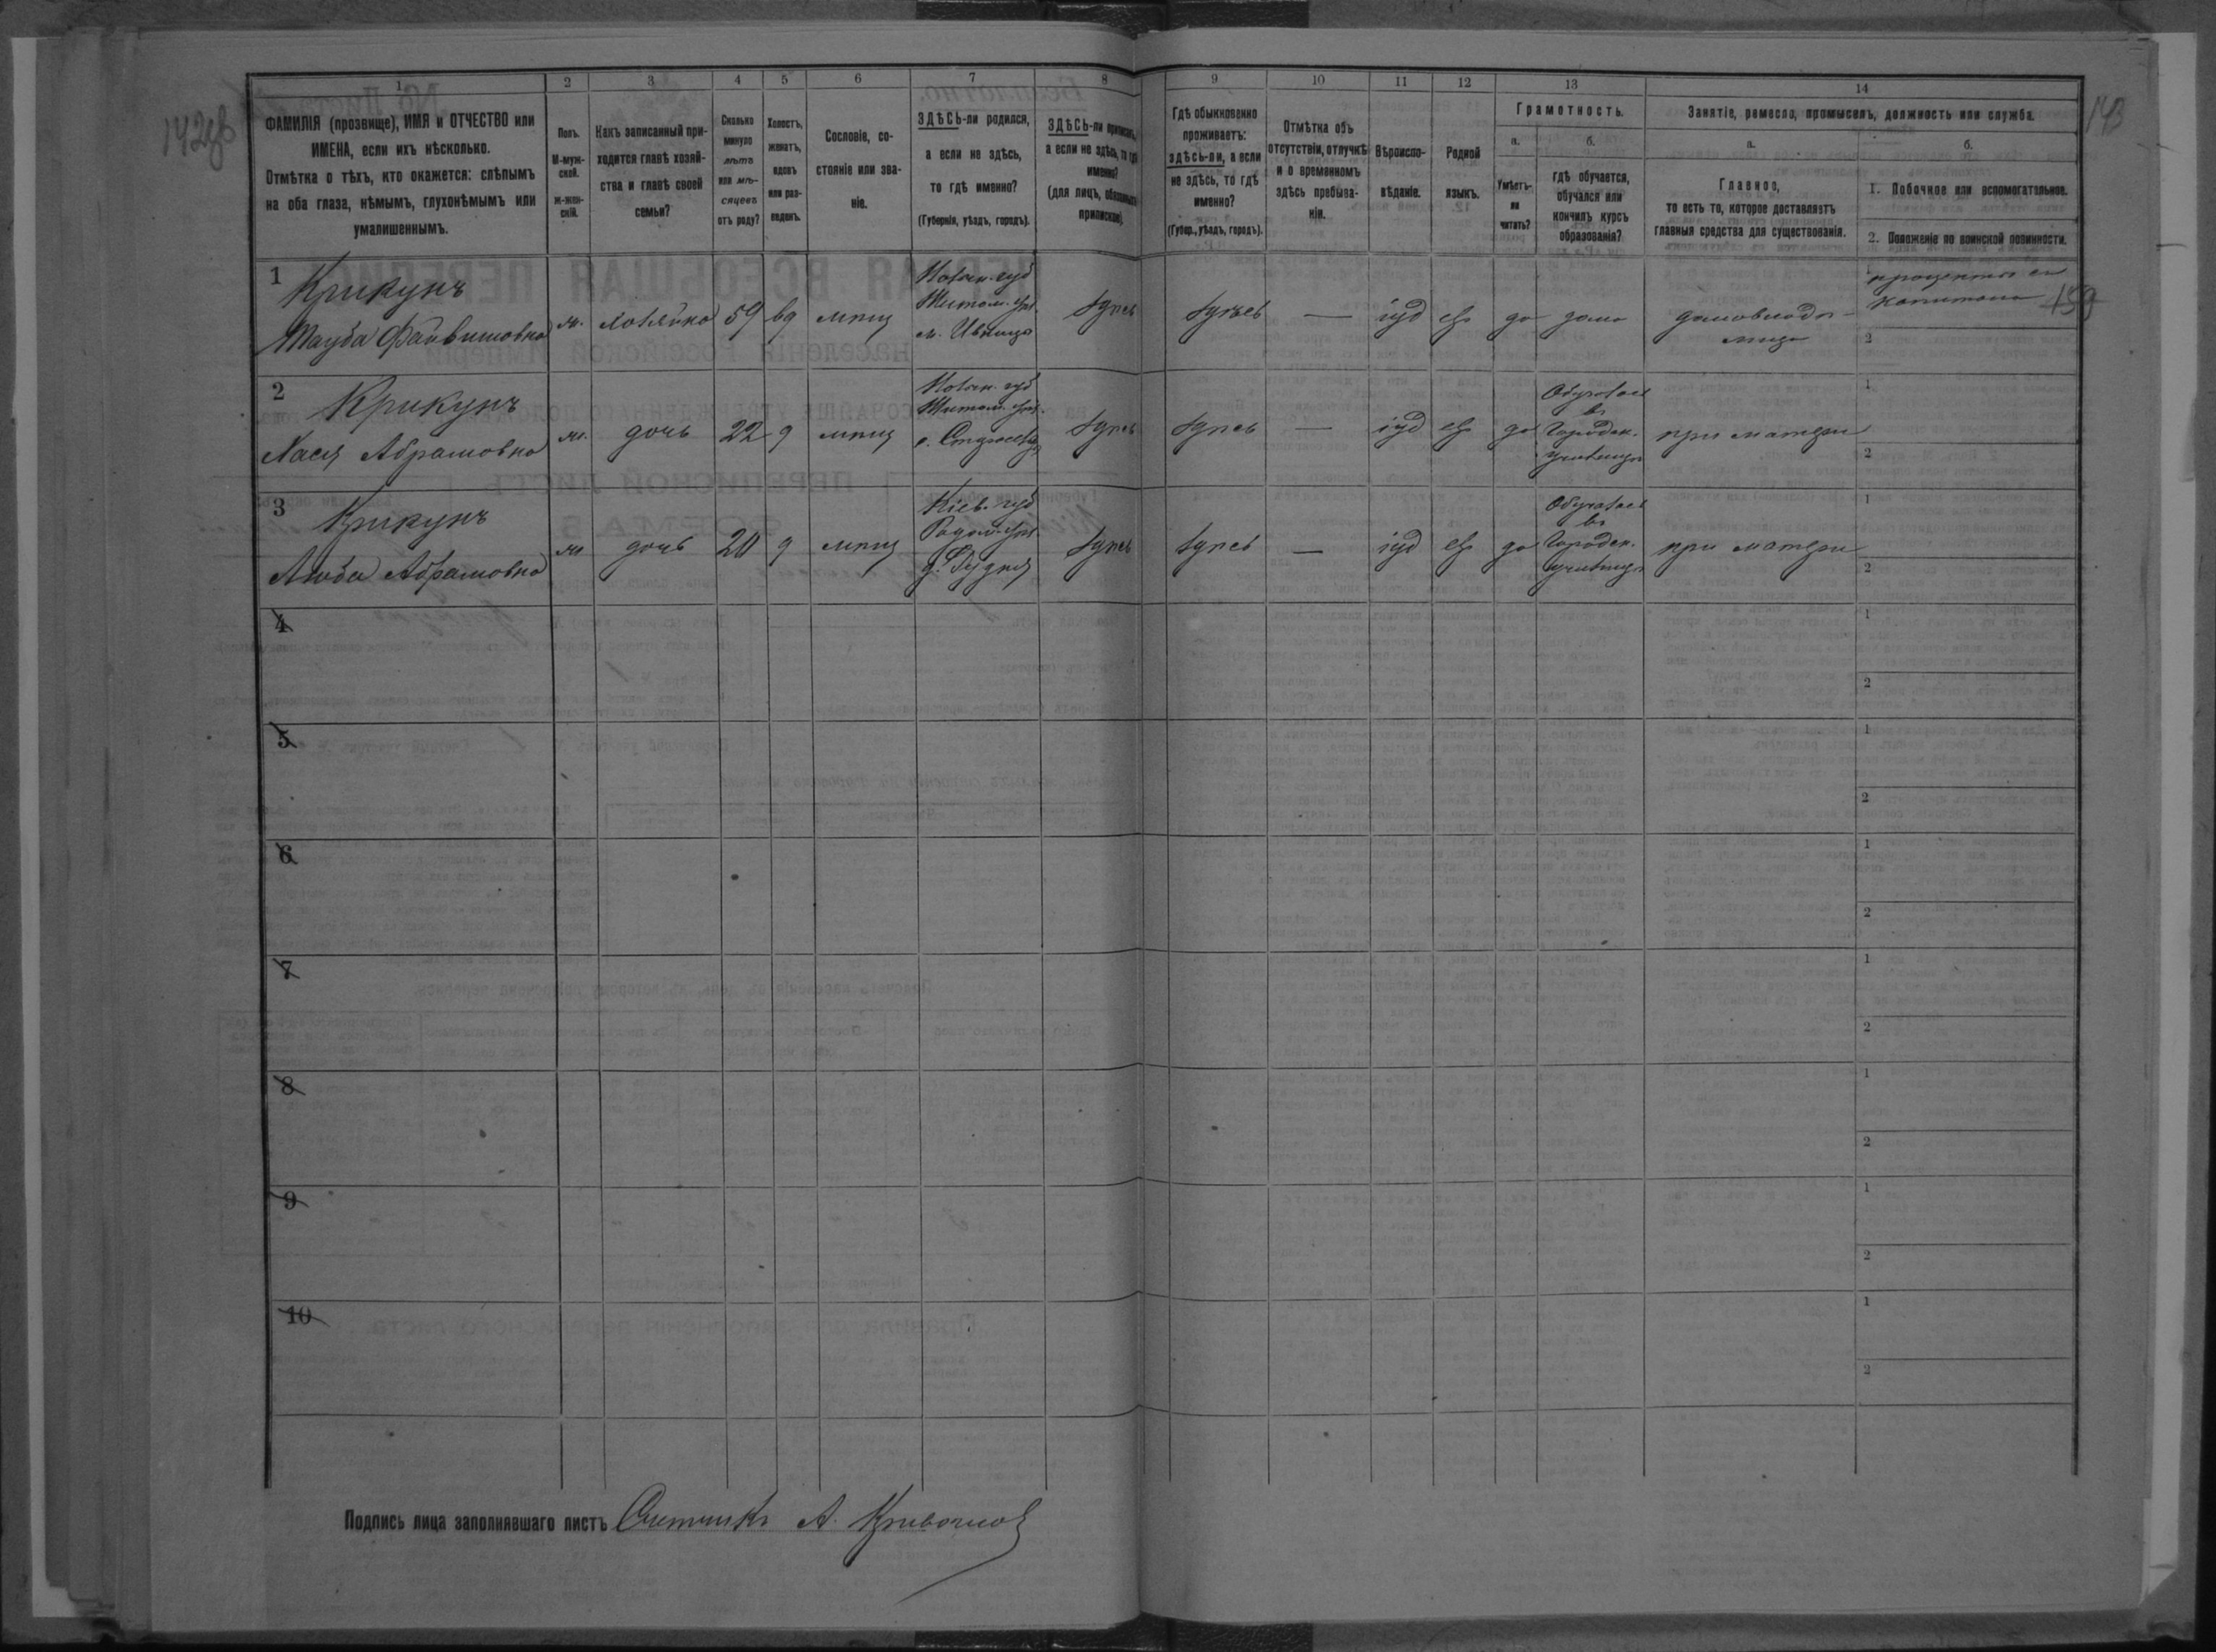 142об
143
1
2
3
4
5
6
7
8
9
10
11
12
13
14
ФАМИЛІЯ (прозвище), ИМЯ и ОТЧЕСТВО или
ИМЕНА, если ихъ нѣсколько.
Отмѣтка о тѣхъ, кто окажется: слѣпымъ
на оба глаза, нѣмымъ, глухонѣмымъ или
умалишеннымъ.
Полъ.
М-муж-
ской.
ж-жен-
скій.
Какъ записанный при-
ходится главѣ хозяй-
ства и главѣ своей
семьи?
Сколько
минуло
лѣтъ
или мѣ-
сяцевъ
отъ роду?
Холостъ,
женатъ,
вдовъ
или раз-
веденъ.
Сословіе, со-
стояніе или зва-
ніе.
ЗДѢСЬ-ли родился,
а если не здѣсь,
то гдѣ именно?
(Губернія, уѣздъ, городъ).
ЗДѢСЬ-ли приписанъ,
а если не здѣсь, то гдѣ
именно?
(для лицъ, обязанныхъ
припискою).
Гдѣ обыкновенно
проживаетъ:
здѣсь-ли, а если
не здѣсь, то гдѣ
именно?
(Губер., уѣздъ, городъ).
Отмѣтка объ
отсутствіи, отлучкѣ
и о временномъ
здѣсь пребыва-
ніи.
Вѣроиспо-
вѣданіе.
Родной
языкъ.
Грамотность.
а.
Умѣетъ-
ли
читать?
б.
гдѣ обучается,
обучался или
кончилъ курсъ
образованія?
Занятіе, ремесло, промыселъ, должность или служба.
а.
Главное,
то есть то, которое доставляетъ
главныя средства для существованія.
б.
1. Побочное или вспомогательное.
2. Положеніе по воинской повинности.
1
Крикунъ
Тауба Файвишовна
ж. хозяйка 59 вд мѣщ
Волын. губ
Житом. уѣз.
м. Ивница
здѣсь здѣсь — іуд евр да дома
домовладѣ-
лица
1
проценты съ
капитала
159
2
2
Крикунъ
Хася Абрамовна
ж. дочь 22 д мѣщ
Волын. губ
Житом. уѣз.
здѣсь здѣсь — іуд евр да
Обучалась
въ
Городск.
училищѣ
при матери
1
2
3
Крикунъ
Люба Абрамовна
ж дочь 20 д мѣщ
Кіев. губ
Радом. уѣз.
д. Рудня
здѣсь здѣсь — іуд евр да
Обучалась
въ
Городск.
училищѣ
при матери
1
2
4
1
2
5
1
2
6
1
2
7
1
2
8
1
2
9
1
2
10
1
2
Подпись лица заполнявшаго листъ Счетчикъ А.